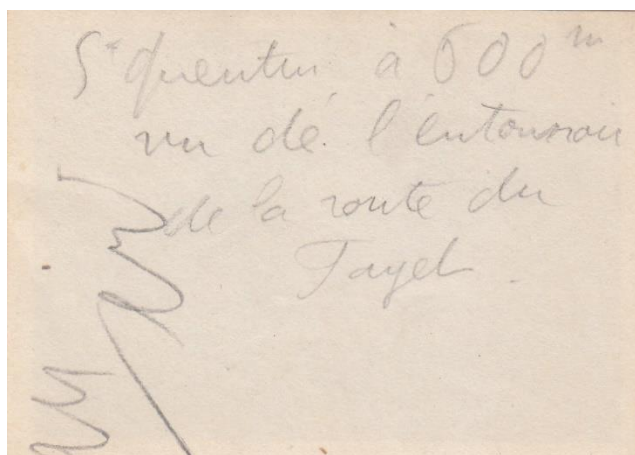 St quentin à 600 m
vu de l'entonnoir
de la route du
Fayet.